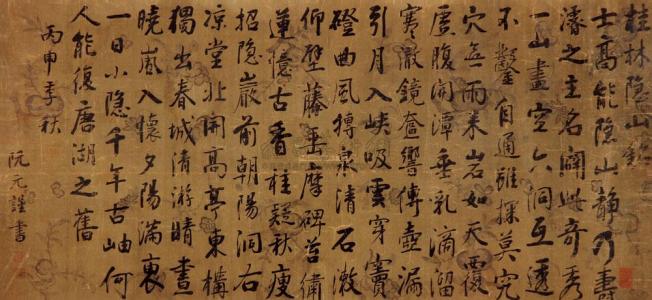 桂林隐山銘
士高能隐山静乃壽
濬之主名闢此奇秀
一山畫空六洞互透
不鑿自通雖探莫究
穴無雨来岩如天覆
虚腹開潭垂乳滴溜
寒澈鏡奩響傳壺漏
引月入峡吸雲穿竇
磴曲風摶泉清石漱
仰壁藤垂摩碑苔繡
蓮憶古香桂疑秋瘦
招隐巖前朝陽洞右
凉堂北開高亭東構
獨出春城清游晴晝
曉嵐入懷夕陽滿褎
一日小隐千年古岫何
人能復唐湖之舊
丙申季秋
阮元謹書